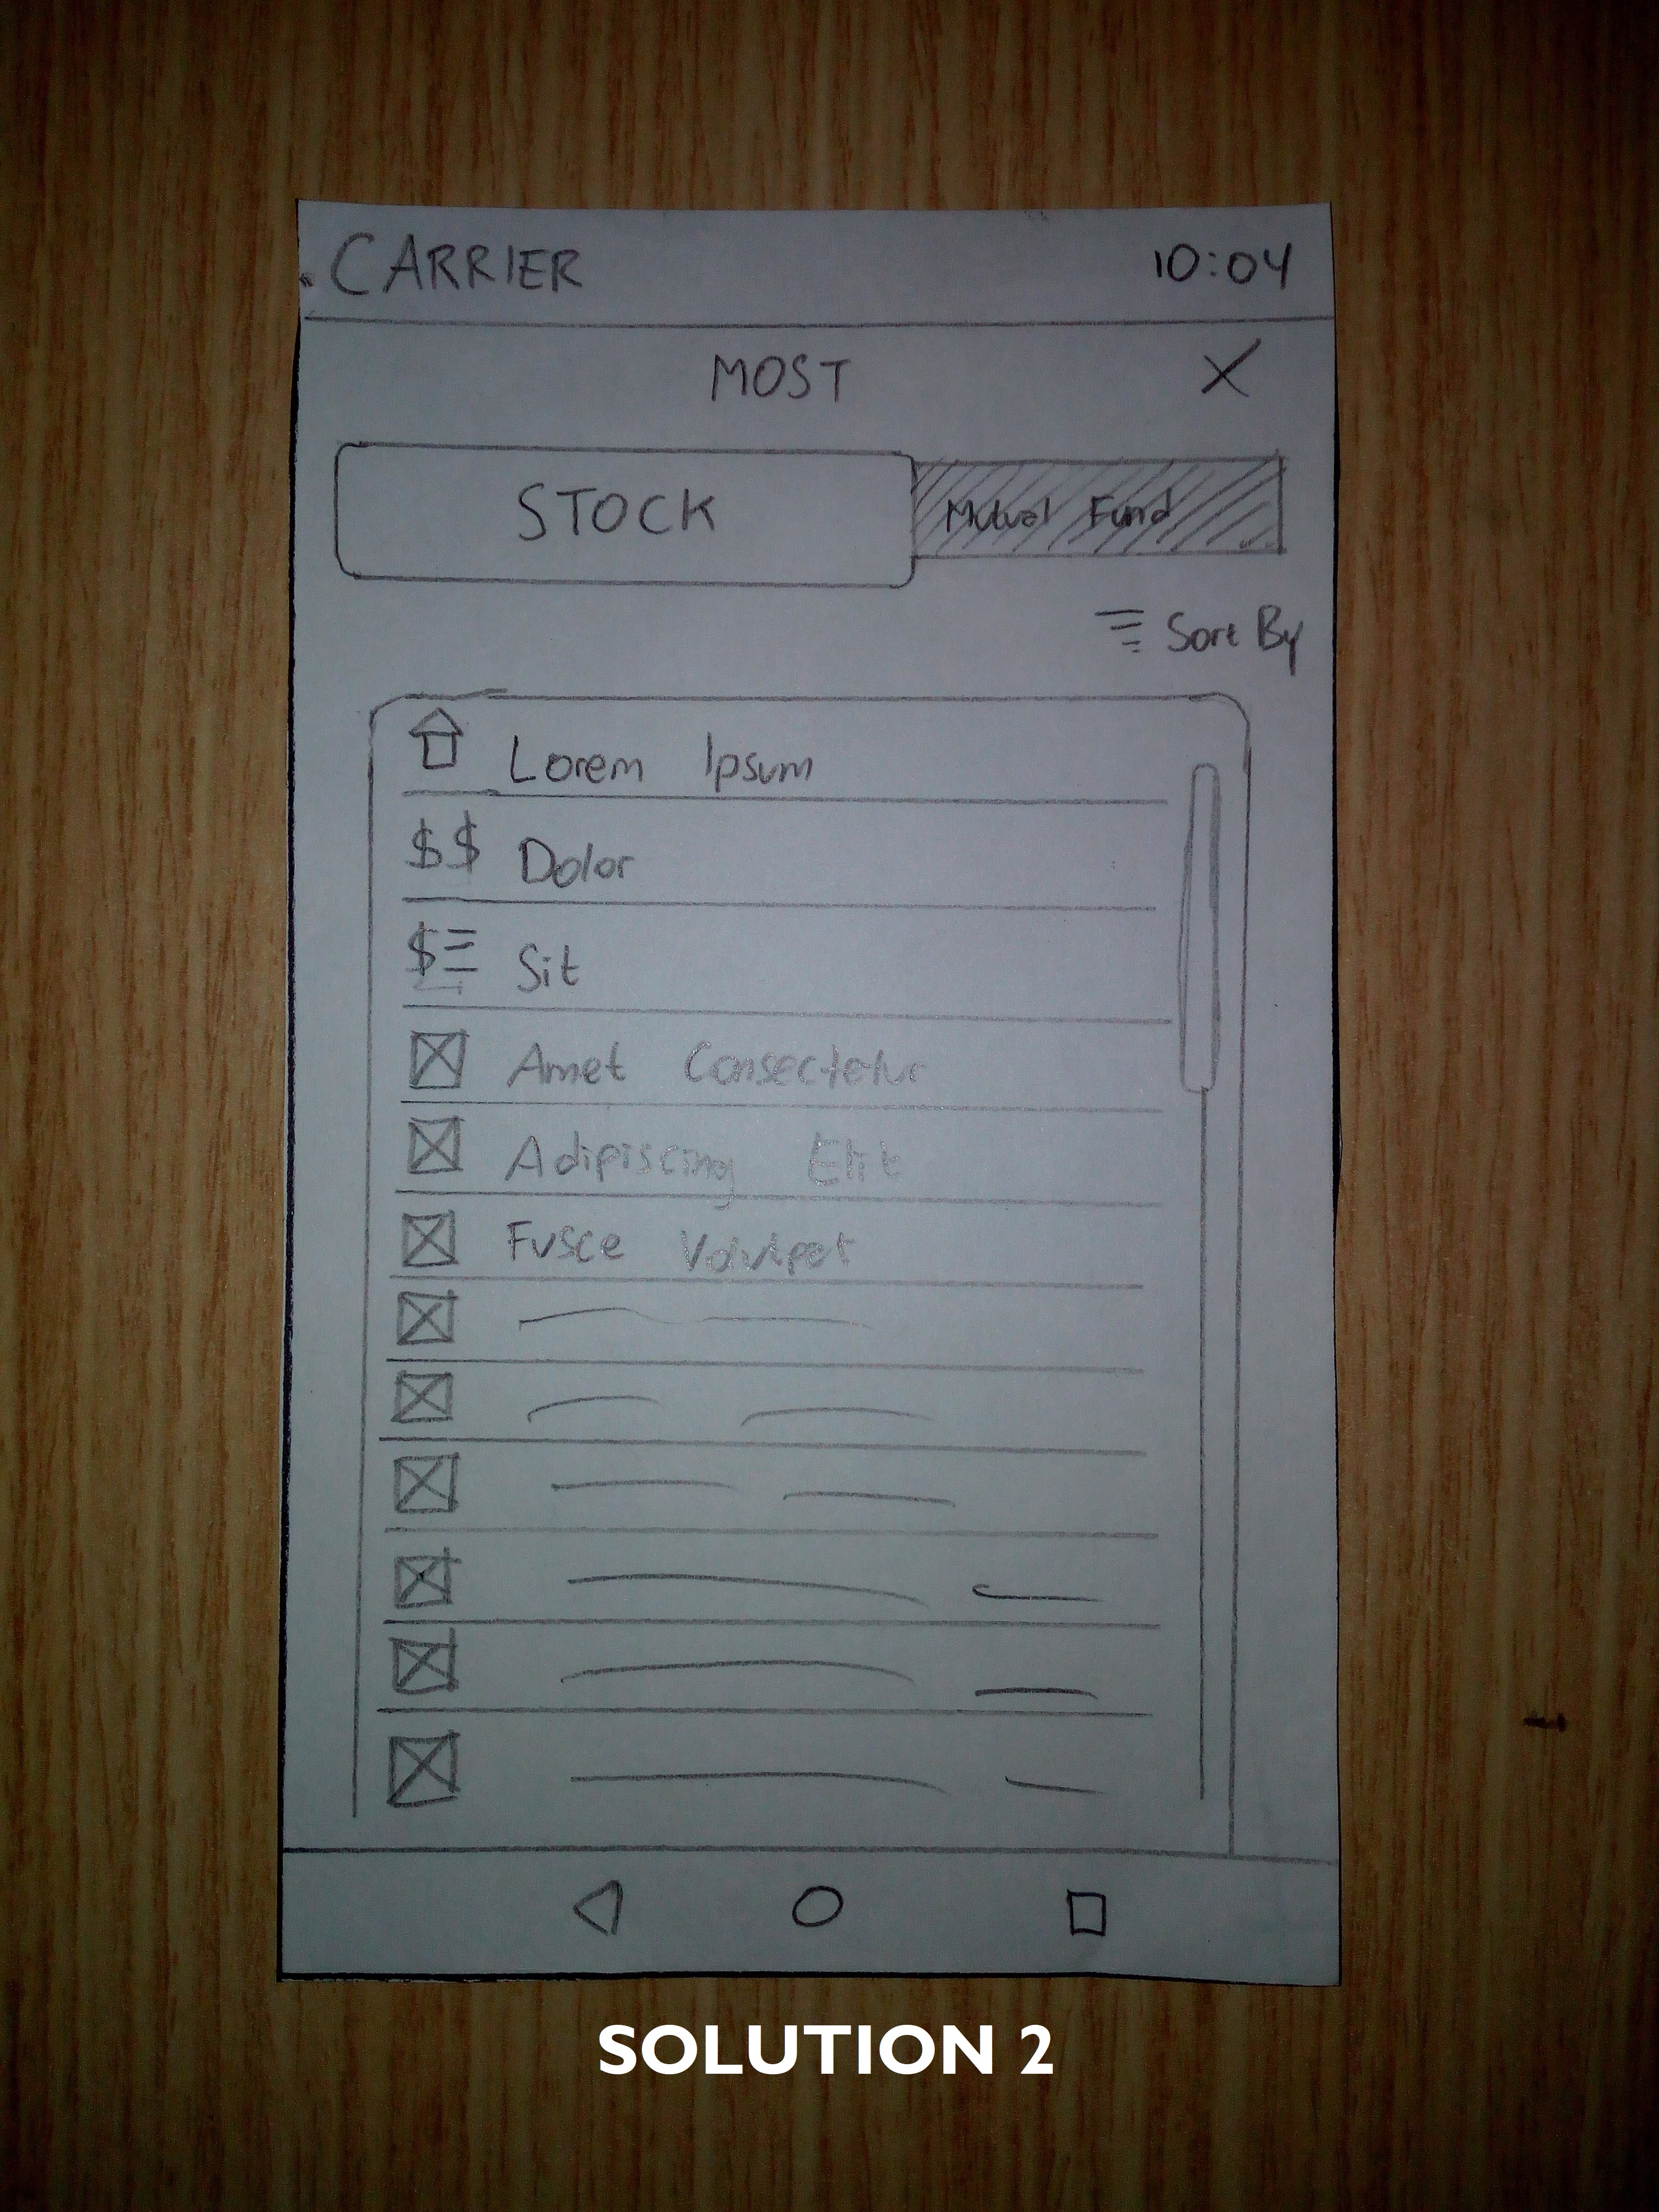 CARRIER 10:04
MOST X
STOCK Mutual Fund
Sort By
Lorem Ipsum
$$ Dolor
$ Sit
Amet Consectetur
Adipiscing Elit
Fusce
SOLUTION 2